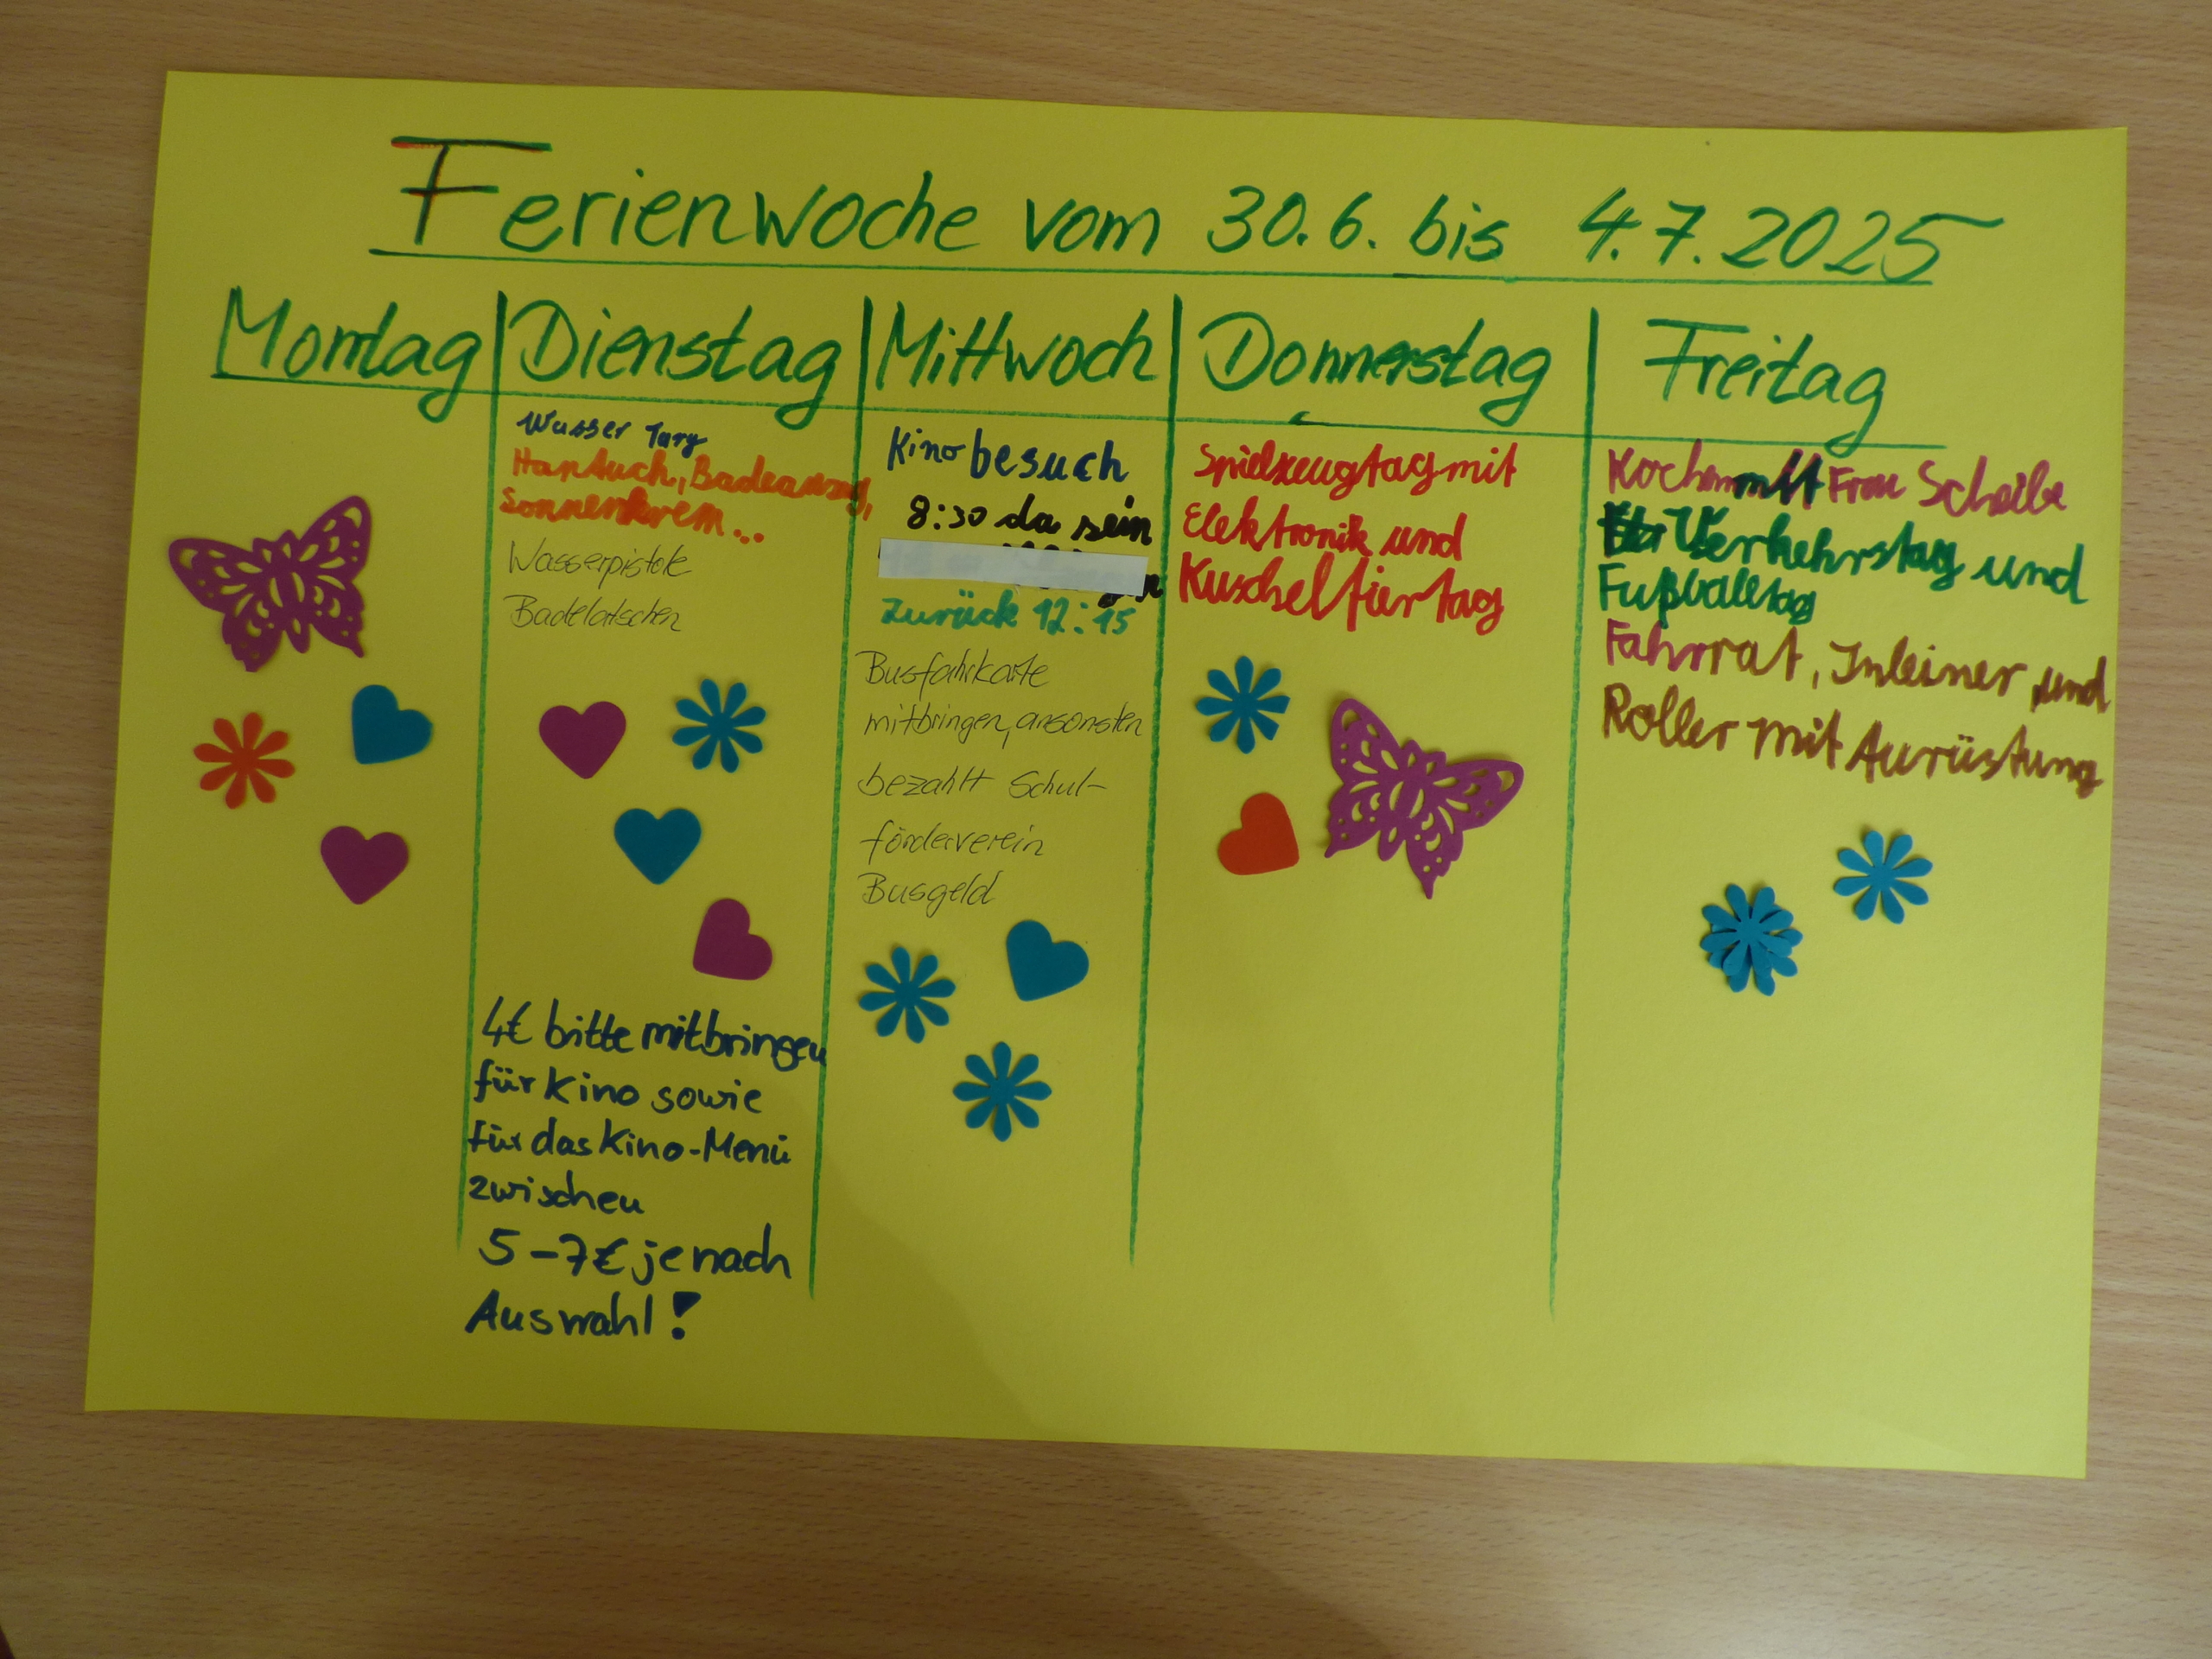 Ferienwoche vom 30.6. bis 4.7.2025
Montag
Dienstag
Wasser Tag
Hantuch, Badeanzug,
Sonnenkrem...
Wasserpistole
Badelatschen
4€ bitte mitbringen
für Kino sowie
für das Kino-Menü
zwischen
5-7€ je nach
Auswahl!
Mittwoch
Kinobesuch
8:30 da sein
Zurück 12:15
Busfahrkarte
mitbringen, ansonsten
bezahlt Schul-
förderverein
Busgeld
Donnerstag
Spielzeugtag mit
Elektronik und
Kuscheltiertag
Freitag
Kochen mit Frau Scheibe
Verkehrstag und
Fußballtag
Fahrrat, Inleiner und
Roller mit Aurüstung